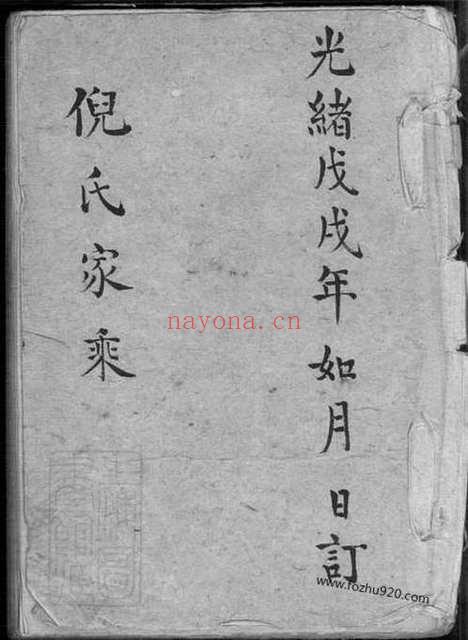 光緒戊戌年如月日訂
倪氏家乘
nayona.cn
www.fozhu920.com